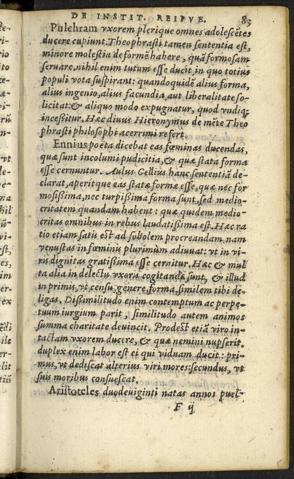 DE INSTIT. REIPVB. 83
Pulchram vxorem plerique omnes adolescẽtes
ducere cupiunt. Theophrasti tamen sententia est,
minore molestia deformẽ habere, quã formosam
seruare. nihil enim tutum esse ducit, in quo totius
populi vota suspirant: quandoquidẽ alius forma,
alius ingenio, alius facundia, aut liberalitate sol
licitat: & aliquo modo expugnatur, quod vndiq;
incessitur. Hæc diuus Hieronymus de mẽte Theo
phrasti philosophi acerrimi refert.
Ennius poëta dicebat eas fœminas ducendas,
quæ sunt incolumi pudicitia, & quæ stata forma
esse cernuntur. Aulus Gellius hanc sententiã de-
clarat, aperitque eas statæ formæ esse, quæ nec for
mosissima, nec turpissima forma sunt, sed medio-
critatem quandam habent: quæ quidem medio-
critas omnibus in rebus laudatissima est. Hæc ra
tio etiam satis est ad sobolem procreandam. nam
venustas in fœminis plurimùm adiuuat: vt in vi-
ris dignitas gratissima esse cernitur. Hæc & mul
ta alia in delectu vxoris cogitanda sunt, & illud
in primis, vt censu, genere, forma, similem tibi de-
ligas. Dissimilitudo enim contemptum ac perpe-
tuum iurgium parit, similitudo autem animos
summa charitate deuincit. Prodest etiã viro in-
tactam vxorem ducere, & quæ nemini nupserit.
duplex enim labor est ei qui viduam ducit: pri-
mus, vt dediscat alterius viri mores: secundus, vt
suis moribus consuescat.
Aristoteles duodeuiginti natas annos puel-
F ij